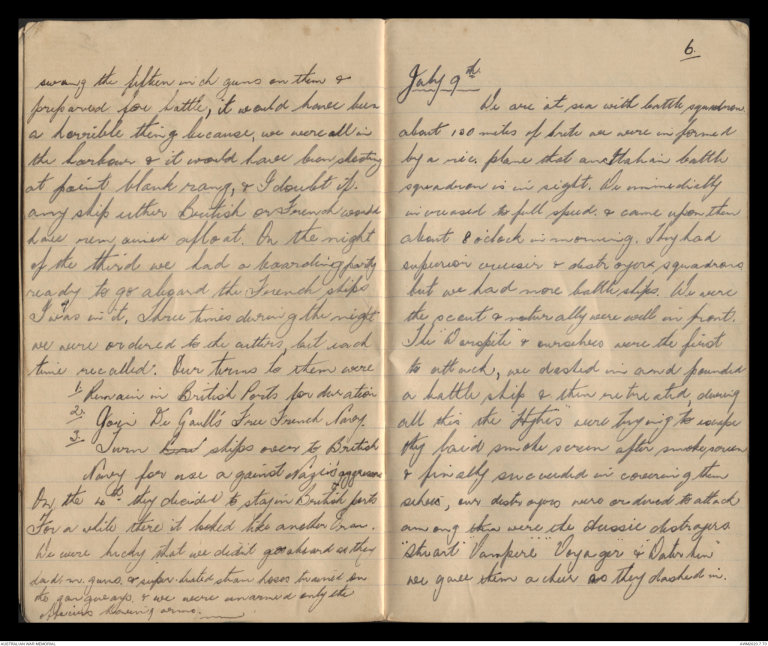 swang the fifteen inch guns on them &
prepared for battle, it would have been
a horrible thing because, we were all in
the harbour & it would have been shooting
at point blank rang, & I doubt if
any ship either British or French would
have remained afloat. On the night
of the third we had a boarding party
ready to go aboard the French ships
I was in it, three times during the night
we were ordered to the cutters, but each
time recalled. Our terms to them were
1. Remain in British Ports for duration
2. Join De Gaulle's Free French Navy.
3. Turn ships over to British
Navy for use against Nazis aggressive
On the 4th they decided to stay in British ports
For a while there it looked like another Oran.
We were lucky that we didn't go aboard as they
had m. guns, & super heated steam hoses trained on
the gangways, & we were unarmed only the
officers having arms.
6.
July 9th.
We are at sea with battle squadron
about 100 miles of Crete we were informed
by a plane that an Italian battle
squadron is in sight. We immediatly
increased to full speed. & came upon them
about 8 o'clock in morning. They had
superior cruiser & destroyer squadrons
but we had more battleships. We were
the scout & naturally were well in front.
The "Warspite" & ourselves were the first
to attack, we dashed in and pounded
a battle ship & then retreated, during
all this the were trying to escape
they laid smoke screen after smoke screen
& finally succeeded in covering them
selves, our destroyers were ordered to attack
among were the Aussie destroyers
"Stuart" Vampire" Voyager" & "Waterhen"
we gave them a cheer as they dashed in.